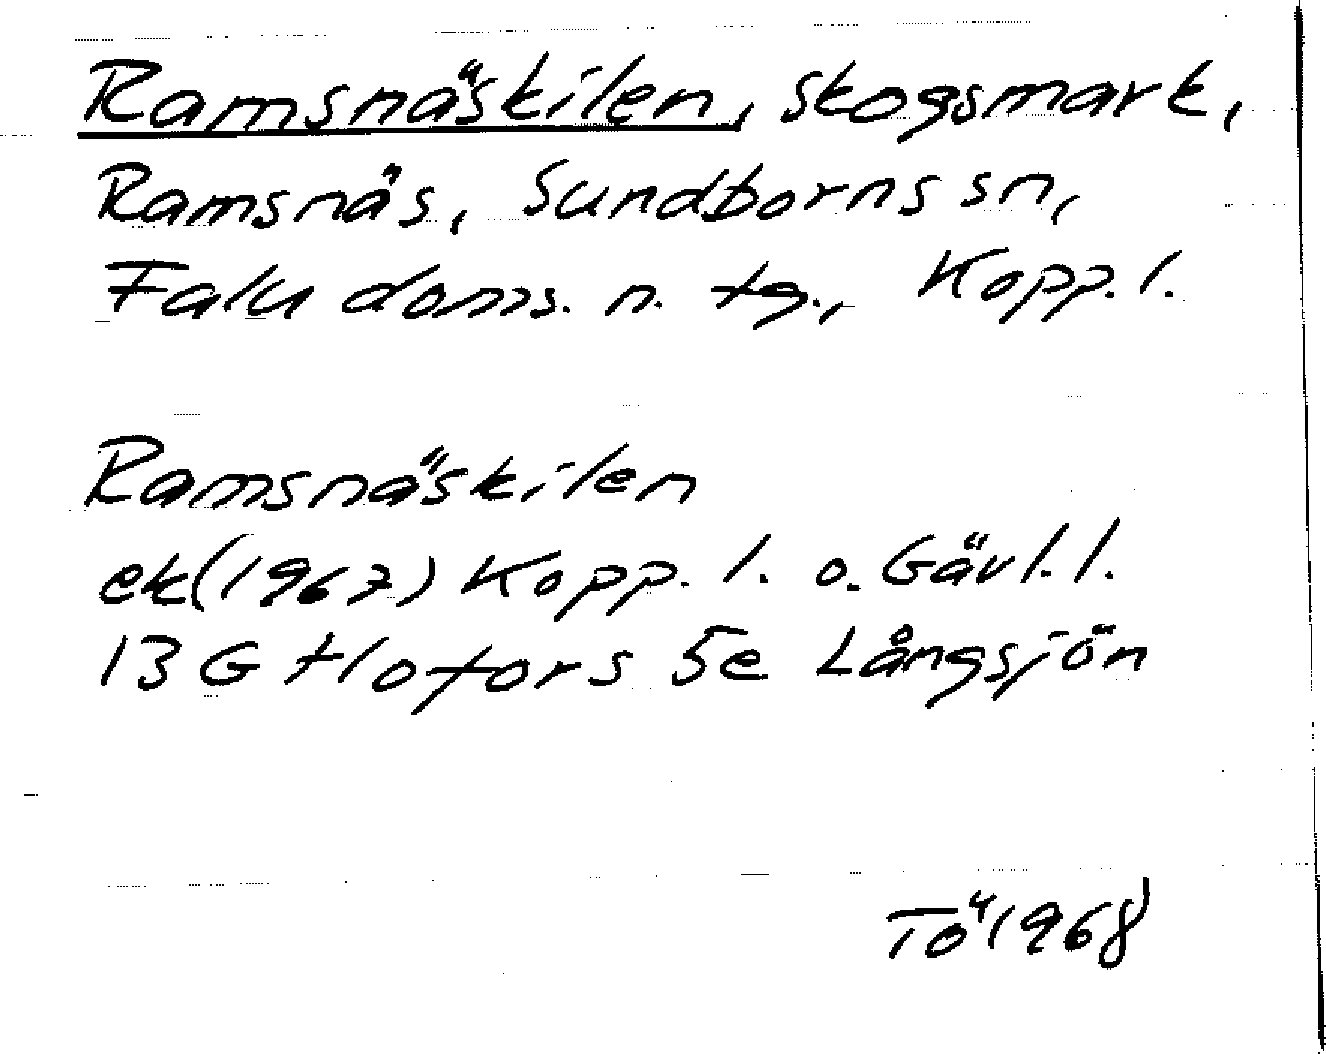 Ramsnäskilen, skogsmark,
Ramsnäs, Sundborns sn,
Falu doms. n. tg., Kopp. l.
Ramsnäskilen
ek(1967) Kopp. l. o. Gävl. l.
13 G Hofors 5e Långsjön
Tö 1968